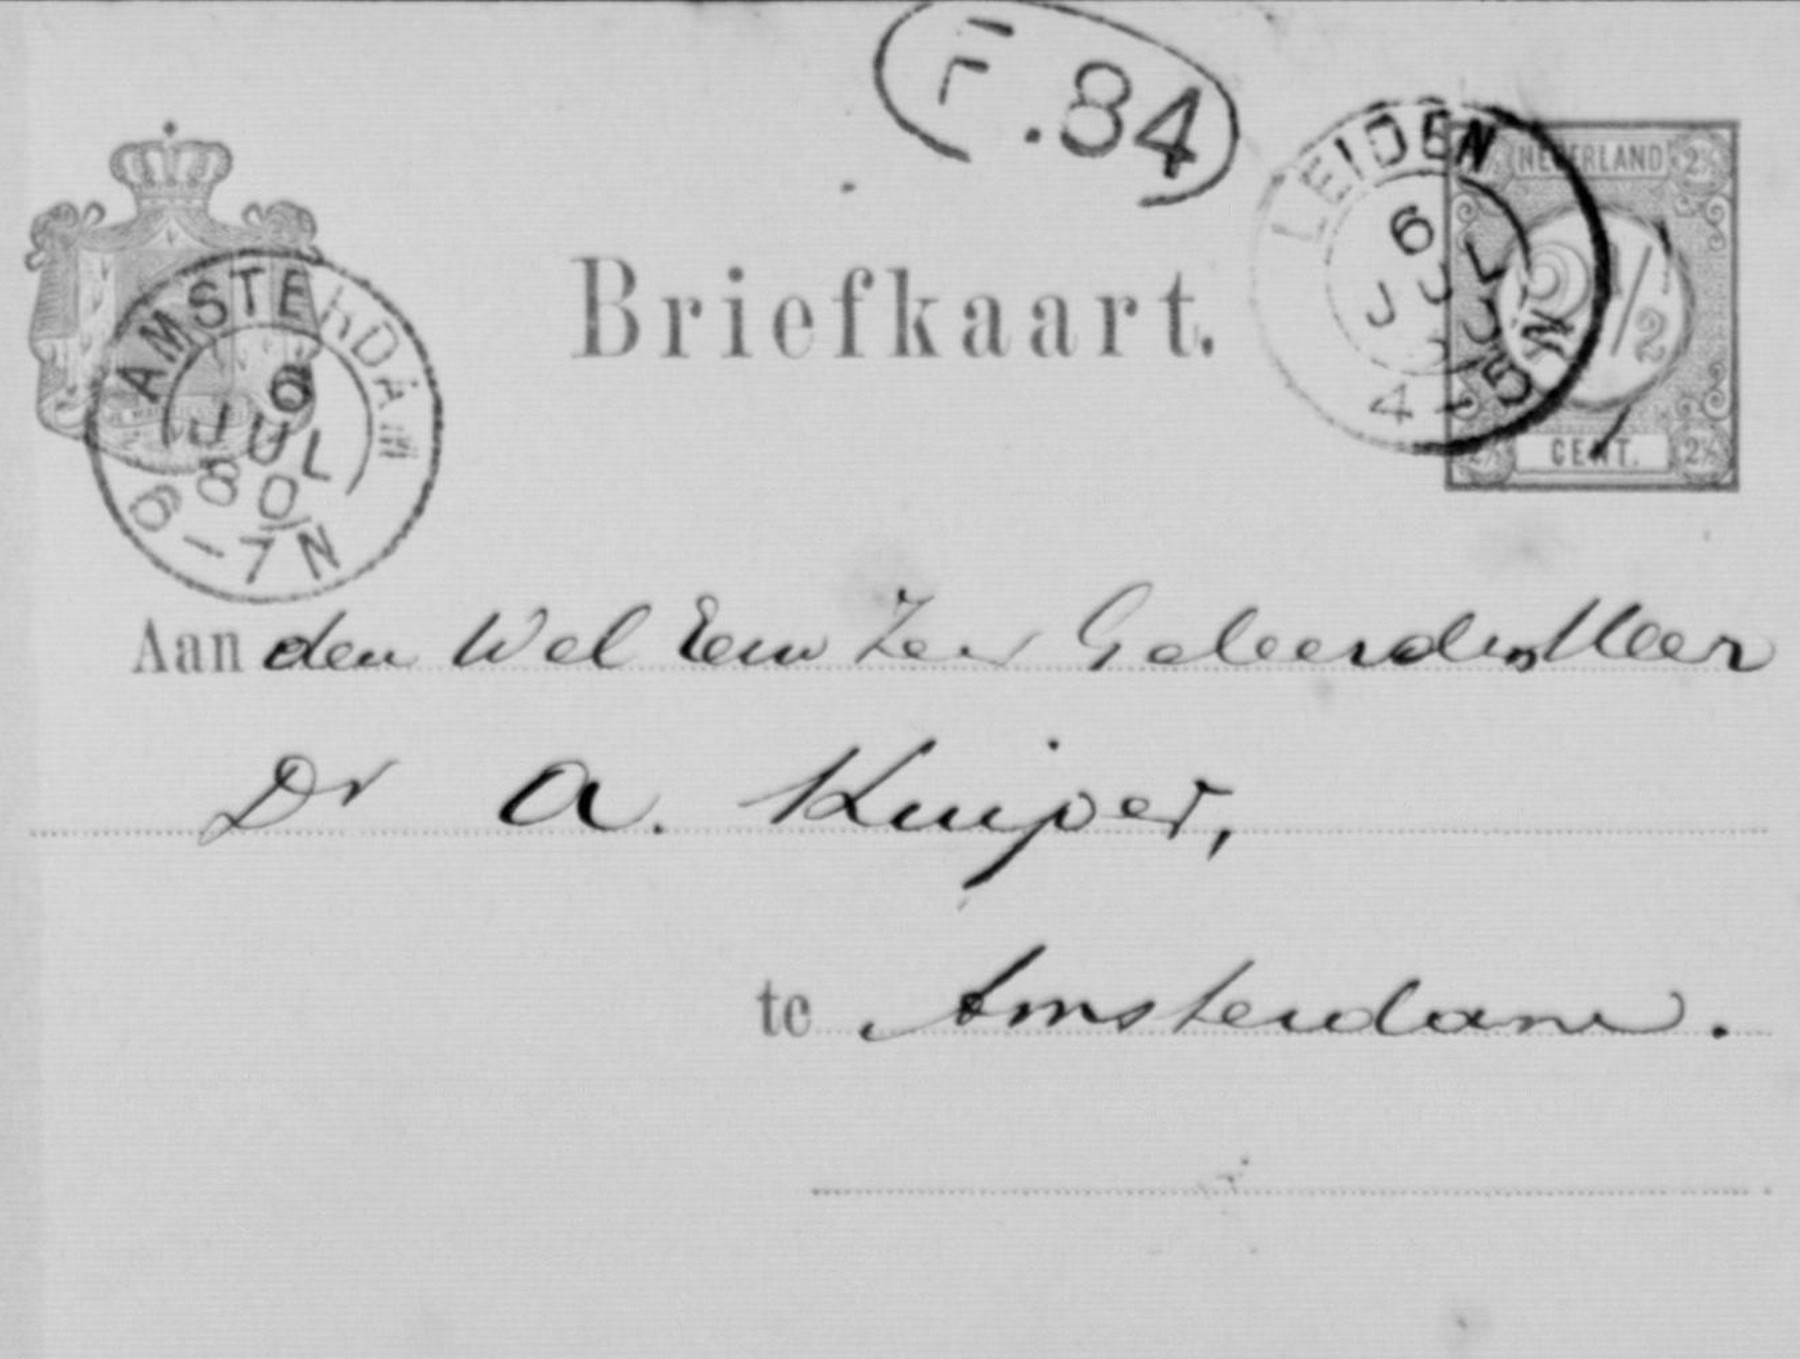 F.84
LEIDEN
6 JUL
4-5N
NEDERLAND
2½
2½
CENT.
2½
2½
AMSTERDAM
6
JUL
80
6-7N
Briefkaart.
Aan den Wel Eerw Zeer Geleerden Heer
Dr A. Kuiper,
te Amsterdam.